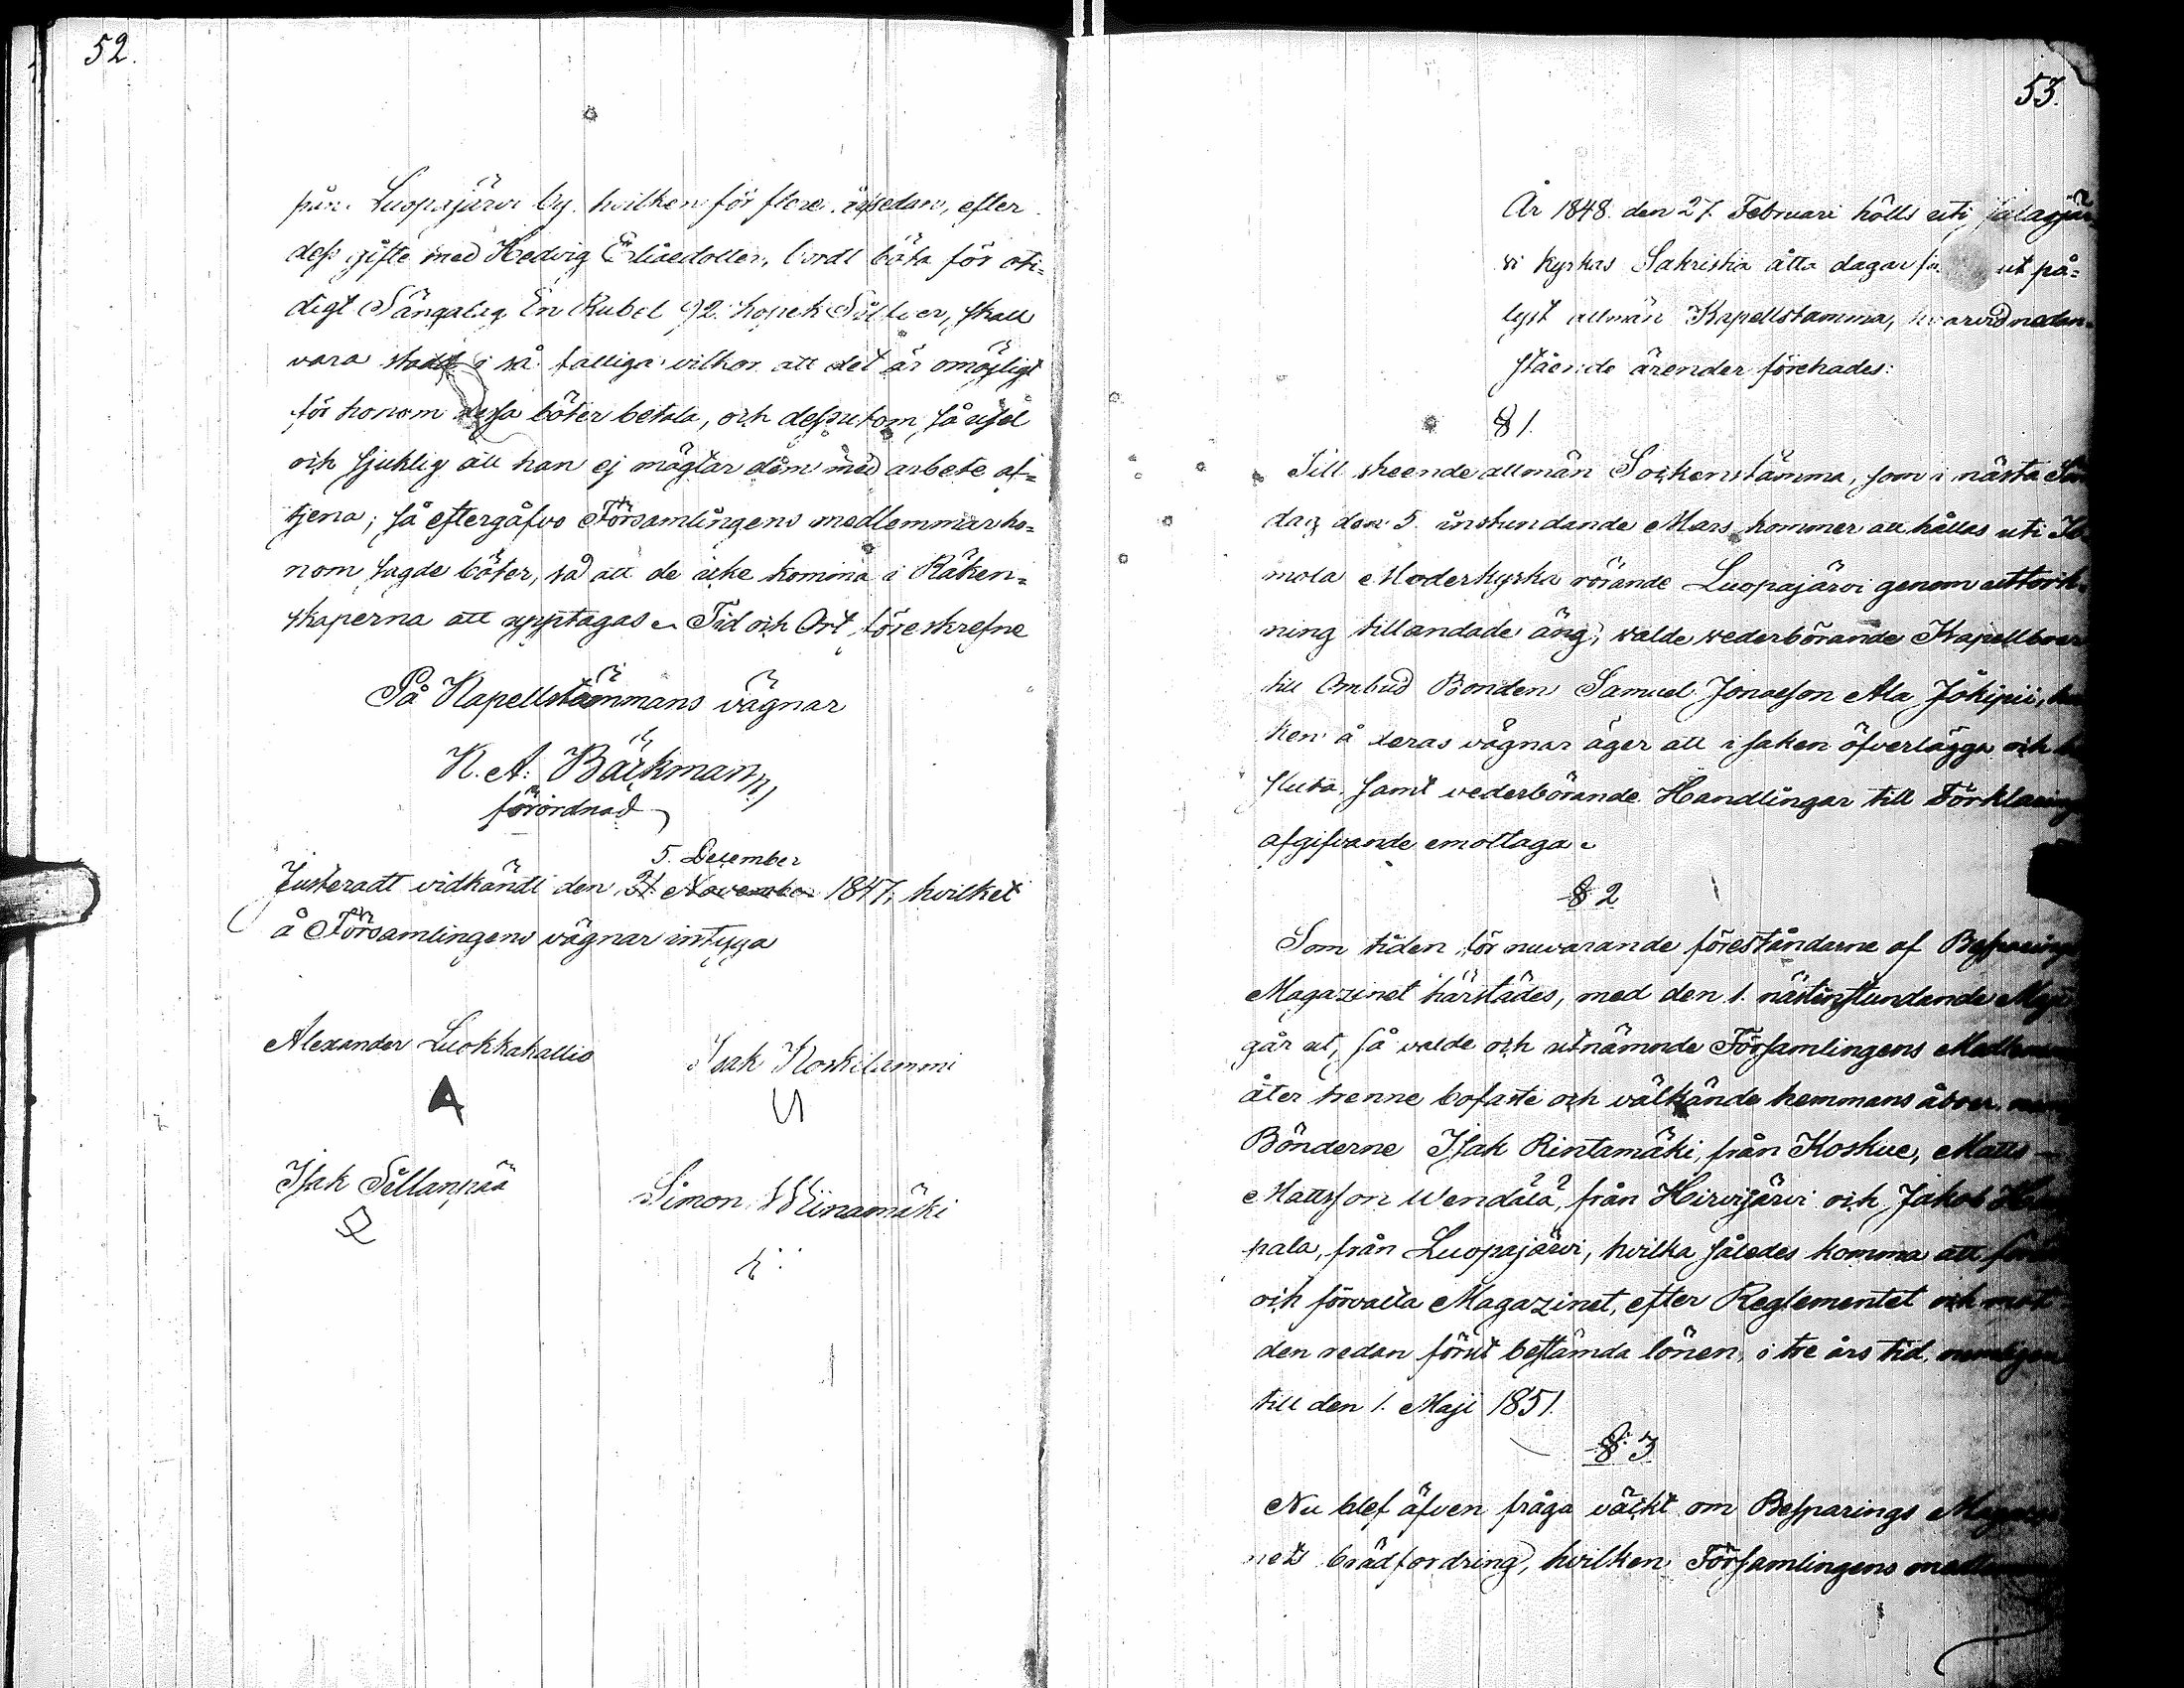 52.
från Luopajärvi by, hvilken för flere år sedan, efter
dess gifte med Hedvig Eliaedotter, bordt böta för oti=
digt Sängalag En Rubel 92 kopek Silfver, skall
vara stadd i så fattiga vilkor att det är omöjligt
för honom dessa böter betala, och dessutom så usel
och sjuklig att han ej mägtar dem med arbete af=
tjena; så eftergåfvo Församlingens medlemmar ho=
nom sagde böter, så att de icke komma i Räken=
skaperna att upptagas. Tid och Ort föreskrefne
På Kapellstämmans vägnar
K. A. Bäckman
förordnad
5. December
Justeradt vidkändt den 21 November 1847; hvilket
å Församlingens vägnar intyga
Alexander Luokkakallio Isak Koskilammi
A
Isak Sillanpää Simon Wiinamäki
53.
År 1848 den 27. Februari hölls uti Jalasjär
vi kyrkas Sakristia åtta dagar ut på=
lyst allmän Kapellstämma, hvarvid nedan=
stående ärender förehades:
§ 1.
Till skeende allmän Sockenstämma, som i nästa Sön
dag den 5. instundande Mars kommer att hållas uti Il
mola Moderkyrka rörande Luopajärvi genom uttork=
ning tillandade äng, valde vederbörande Kapellboer
till Ombud Bonden Samuel Jonaeson Ala Jökipii,
ken å deras vägnar äger att i saken öfverlägga och be
sluta samt vederbörande Handlingar till Förklarings
afgifvande emottaga.
§ 2
Som tiden för nuvarande föreståndarne af Besparings
Magazinet härstädes, med den 1. nästinstundande Maji
går ut, så valde och utnämnde Församlingens Medlemmar
åter trenne bofaste och välkände hemmans åboer
Bönderne Isak Rintamäki, från Koskue, Matts
Mattsson Wendälä, från Hirvijärvi och Jakob
pala, från Luopajärvi, hvilka således komma att
och förvalta Magazinet, efter Reglementet och mot
den redan förut bestämda lönen, i tre års tid, nemligen
till den 1. Maji 1851.
§ 3
Nu blef äfven fråga väckt om Besparings Magazi
nets brådfordring, hvilken Församlingens medlemmar